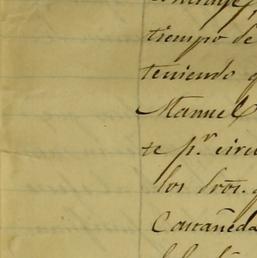 tiempo de
teniendo q
Manuel
te p.r circu
los Sros. q
Castañeda